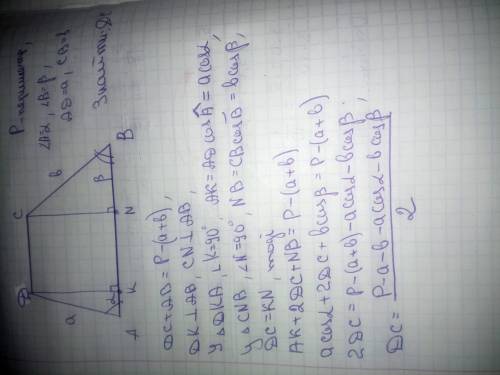 P-периметр,
∠A=α, ∠B=β,
AD=a, CB=b
Знайти: DC
D
C
a
b
α
β
A
K
N
B
DC+AB=P-(a+b),
DK⊥AB, CN⊥AB,
У △DKA, ∠K=90°, AK=AD cos A = a cosα,
У △CNB, ∠N=90°, NB=CB cos B = b cosβ,
DC=KN, тоді
AK+2DC+NB=P-(a+b)
a cosα+2DC+b cosβ=P-(a+b)
2DC=P-(a+b)-a cosα-b cosβ,
DC= P-a-b-a cosα-b cosβ
2